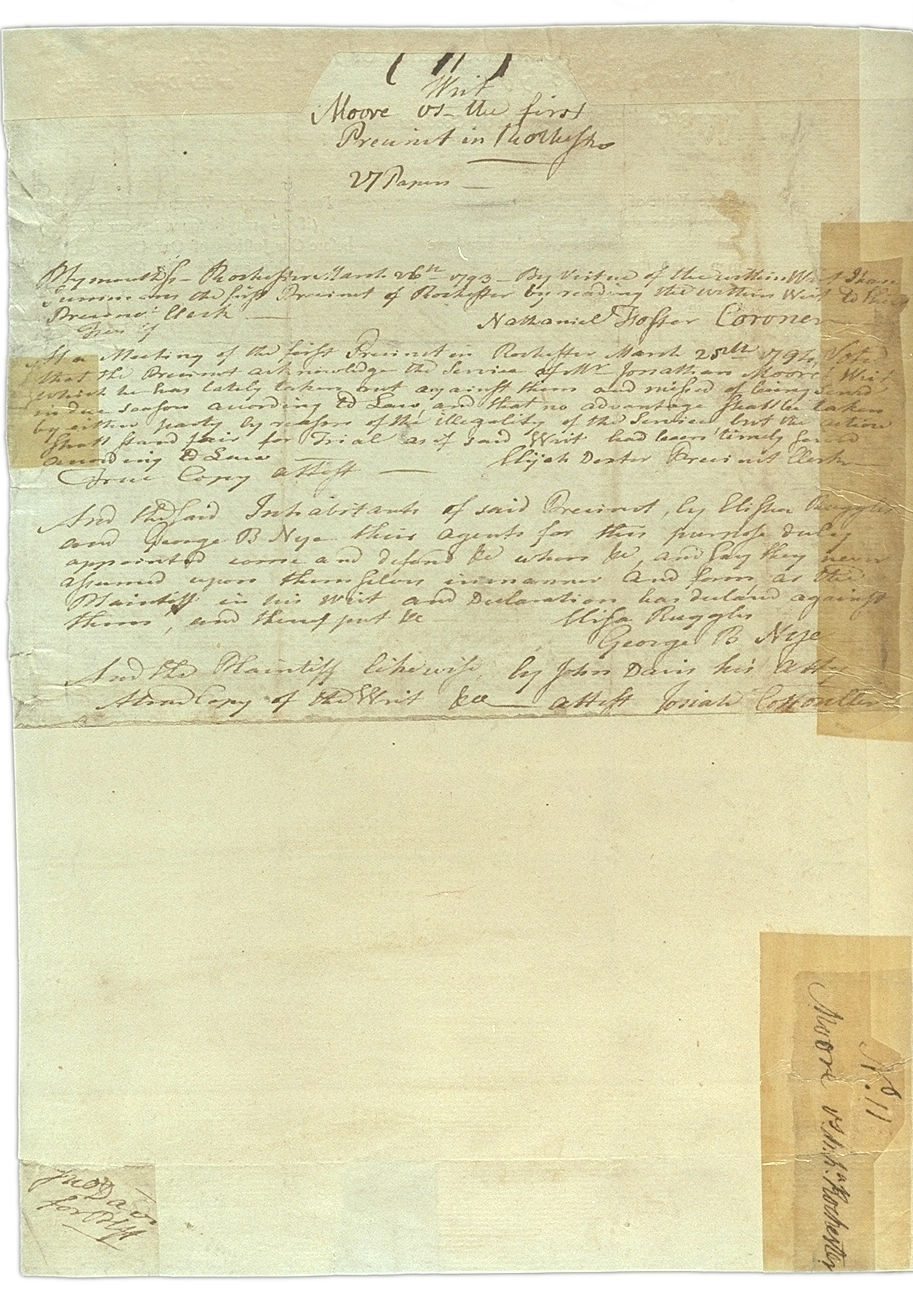 (11)
Writ
Moore vs the first
Precinct in Rochester
27 Papers
Plymouth ss Rochester March 26th 1793 By Virtue of the within Writ I have
Summons the first Precinct of Rochester by reading the within Writ to
Precinct Clerk
Nathaniel Foster Coroner
At a Meeting of the first Precinct in Rochester March 25th 1794 Voted
that the Precinct acknowledge the Service of Mr Jonathan Moore's Writ
which he has lately taken out against them and missed of being Served
in due season according to Law, and that no advantage shall be taken
by either party by reason of the illegality of the Service but the action
shall stand fair for Trial as if said Writ had been timely served
according to Law
Elijah Dexter Precinct Clerk
True Copy attest
And the said Inhabitants of said Precinct, by Elisha Ruggles
and George B Nye their agents for this purpose duly
appointed come and defend &c when &c, and say they never
assumed upon themselves in manner and form as the
Plaintiff in his Writ and Declaration has declared against
them, and thereof put &c
Elisa Ruggles
George B Nye
And the Plaintiff likewise, by John Davis his Atty
A true Copy of the Writ &ca attest Josiah Cotton Cler
No. 11
Moore vs Rochester
Jno Davis
for Plff